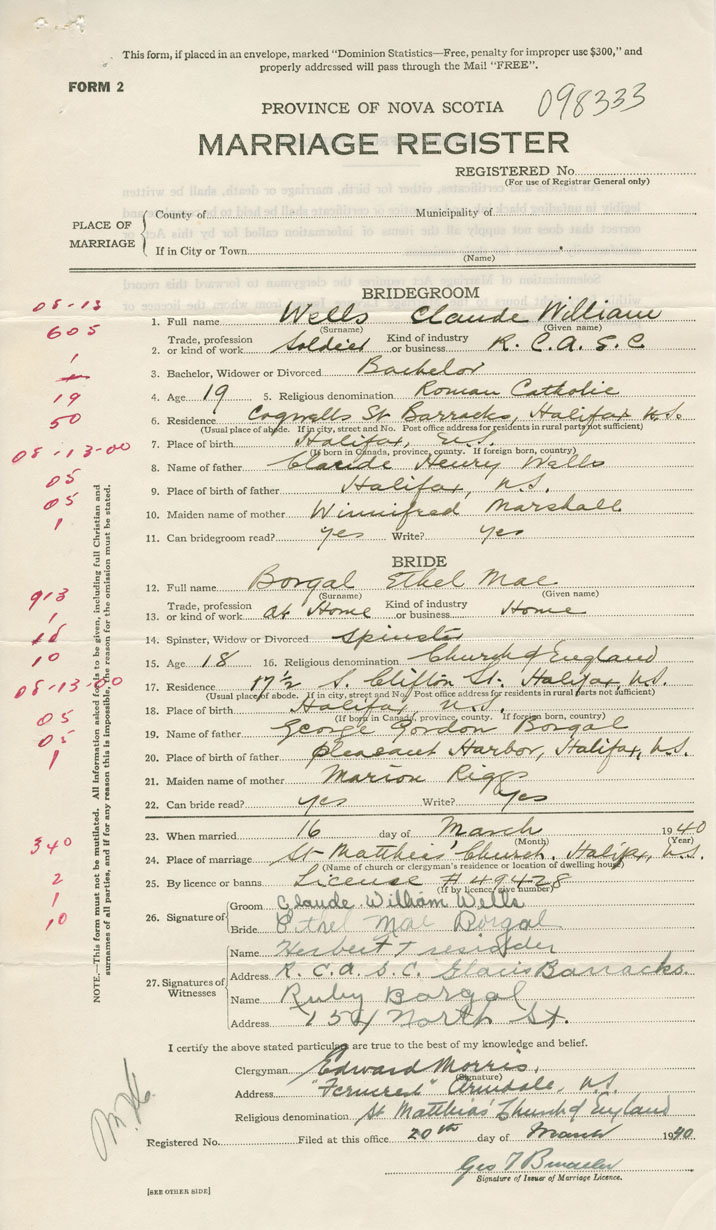 This form, if placed in an envelope, marked "Dominion Statistics—Free, penalty for improper use $300," and
properly addressed will pass through the Mail "FREE".
FORM 2
PROVINCE OF NOVA SCOTIA 098333
MARRIAGE REGISTER
REGISTERED No.
(For use of Registrar General only)
PLACE OF MARRIAGE
County of Municipality of
If in City or Town
(Name)
BRIDEGROOM
05-13
1. Full name Wells Claude William
(Surname) (Given name)
605
2. Trade, profession or kind of work Soldier Kind of industry or business R.C.A.S.C
1
3. Bachelor, Widower or Divorced Bachelor
19
4. Age 19 5. Religious denomination Roman Catholic
50
6. Residence Cogwells St. Barracks, Halifax N.S.
(Usual place of abode. If in city, street and No. Post office address for residents in rural parts not sufficient)
05-13-00
7. Place of birth Halifax, N.S.
(If born in Canada, province, county. If foreign born, country)
8. Name of father Claude Henry Wells
05
9. Place of birth of father Halifax, N.S.
05
10. Maiden name of mother Winnifred Marshall
1
11. Can bridegroom read? yes Write? yes
BRIDE
12. Full name Borgal Ethel Mae
(Surname) (Given name)
913
13. Trade, profession or kind of work at Home Kind of industry or business Home
1
14. Spinster, Widow or Divorced Spinster
18
15. Age 18 16. Religious denomination Church of England
10
17. Residence 17½ S. Clifton St. Halifax, N.S.
(Usual place of abode. If in city, street and No. Post office address for residents in rural parts not sufficient)
05-13-00
18. Place of birth Halifax, N.S.
(If born in Canada, province, county. If foreign born, country)
19. Name of father George Gordon Borgal
05
20. Place of birth of father Pleasant Harbor, Halifax, N.S.
05
21. Maiden name of mother Marion Riggs
1
22. Can bride read? yes Write? yes
23. When married 16 day of March 1940
(Month) (Year)
340
24. Place of marriage St Matthias' Church, Halifax, N.S.
(Name of church or clergyman's residence or location of dwelling house)
2
25. By licence or banns License #49428
(If by licence give number)
1
10
26. Signature of
Groom Claude William Wells
Bride Ethel Mae Borgal
27. Signatures of Witnesses
Name Herbert Tresidder
Address R.C.A.S.C. Glacis Barracks.
Name Ruby Borgal
Address 154 North St.
I certify the above stated particulars are true to the best of my knowledge and belief.
Clergyman Edward Morris,
(Signature)
Address "Ferncrest" Armdale, N.S.
Religious denomination St Matthias' Church of England
Registered No. Filed at this office 20th day of March 1940
Geo T
Signature of Issuer of Marriage Licence.
[SEE OTHER SIDE]
NOTE.—This form must not be mutilated. All information asked for is to be given, including full Christian and
surnames of all parties, and if for any reason this is impossible, the reason for the omission must be stated.